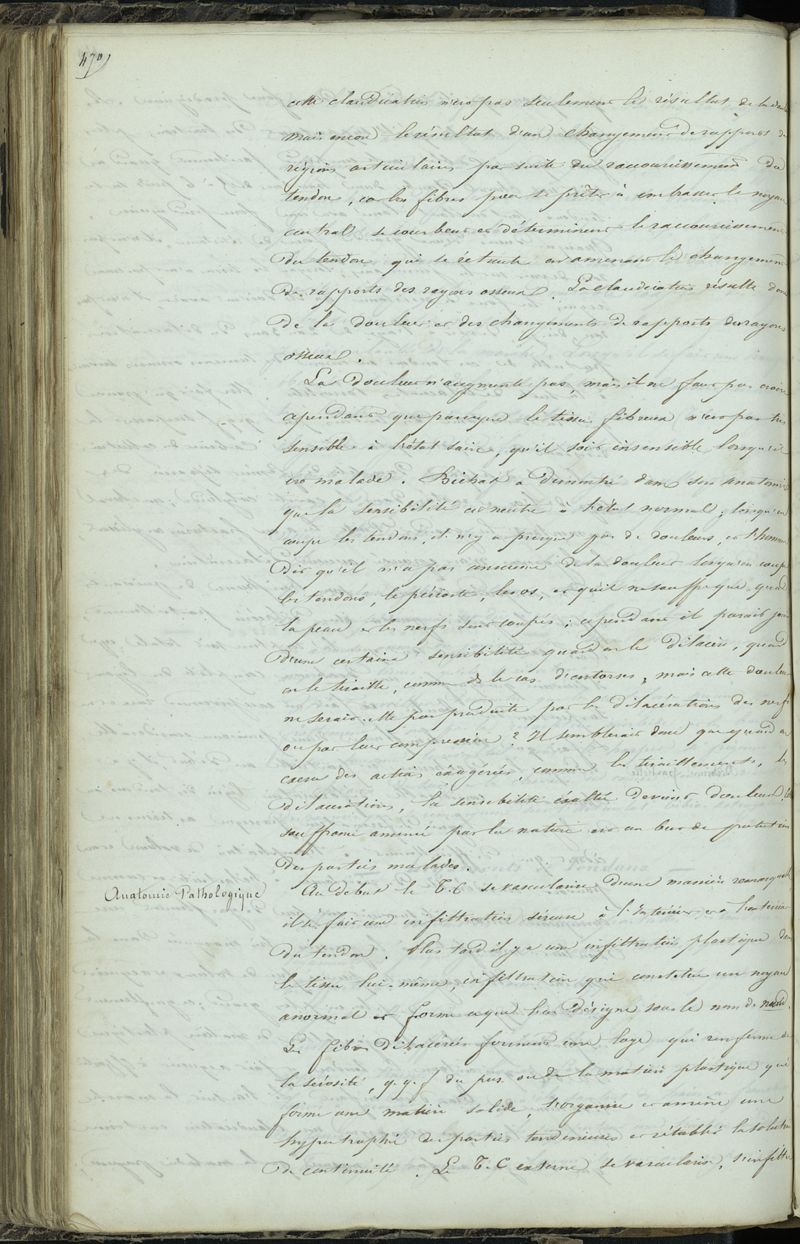 470
cette claudication n'est pas seulement le résultat de la
mais encore le résultat d'un changement de rapports de
régions articulaires par suite du raccourcissement du
tendon, car les fibres pour se prêter à embrasser le noyau
central se courbent et déterminent le raccourcissement
du tendon qui se rétracte et amènent le changement
de rapports des rayons osseux. La claudication résulte donc
de la douleur et des changements de rapports des rayons
osseux.
La douleur n'augmente pas, mais il ne faut pas croire
cependant que parceque le tissu fibreux n'est pas très
sensible à l'état sain, qu'il soit insensible lorsqu'il
est malade. Bichat a démontré dans son anatomie
que la sensibilité est neutre à l'état normal; lorsqu'on
coupe les tendons, il n'y a presque pas de douleurs, et l'homme
dit qu'il n'a pas de la douleur lorsqu'on coupe
les tendons, le périoste, les os, et qu'il ne souffre que quand
la peau et les nerfs sont coupés; cependant il paraît
d'une certaine sensibilité quand on le dilacère, quand
on le tiraille, comme ds le cas d'entorses, mais cette douleur
ne serait-elle pas produite par les dilacérations des nerfs
ou par leur compression? Il semblerait donc que quand on
exerce des actions exagérées, comme les tiraillements, les
dilacérations, la sensibilité exaltée devient douleur,
souffrance amenée par la nature est un but de protection
des parties malades.
Anatomie Pathologique
Au début le T.C se vascularise d'une manière remarquable
il se fait une infiltration séreuse à l'intérieur et à l'extérieur
du tendon. Plus tard il y a une infiltration plastique dans
le tissu lui-même, infiltration qui constitue un noyau
anormal et forme ce que l'on désigne sous le nom de
Les fibres dilacérées forment une loge qui renferme de
la sérosité, q.q.f du pus ou de la matière plastique qui
forme une matière solide, s'organise et amène une
hypertrophie des parties tendineuses et rétablit la solution
de continuité. Le T.C externe se vascularise, s'infiltre